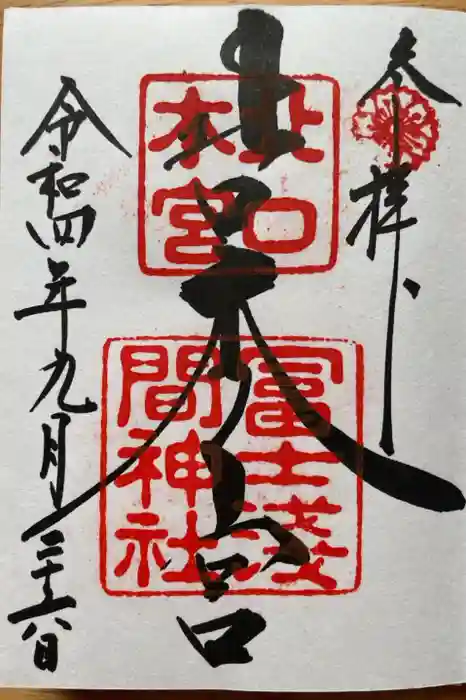 参拝
北口本宮
北口本宮
冨士浅
間神社
令和四年九月二十六日